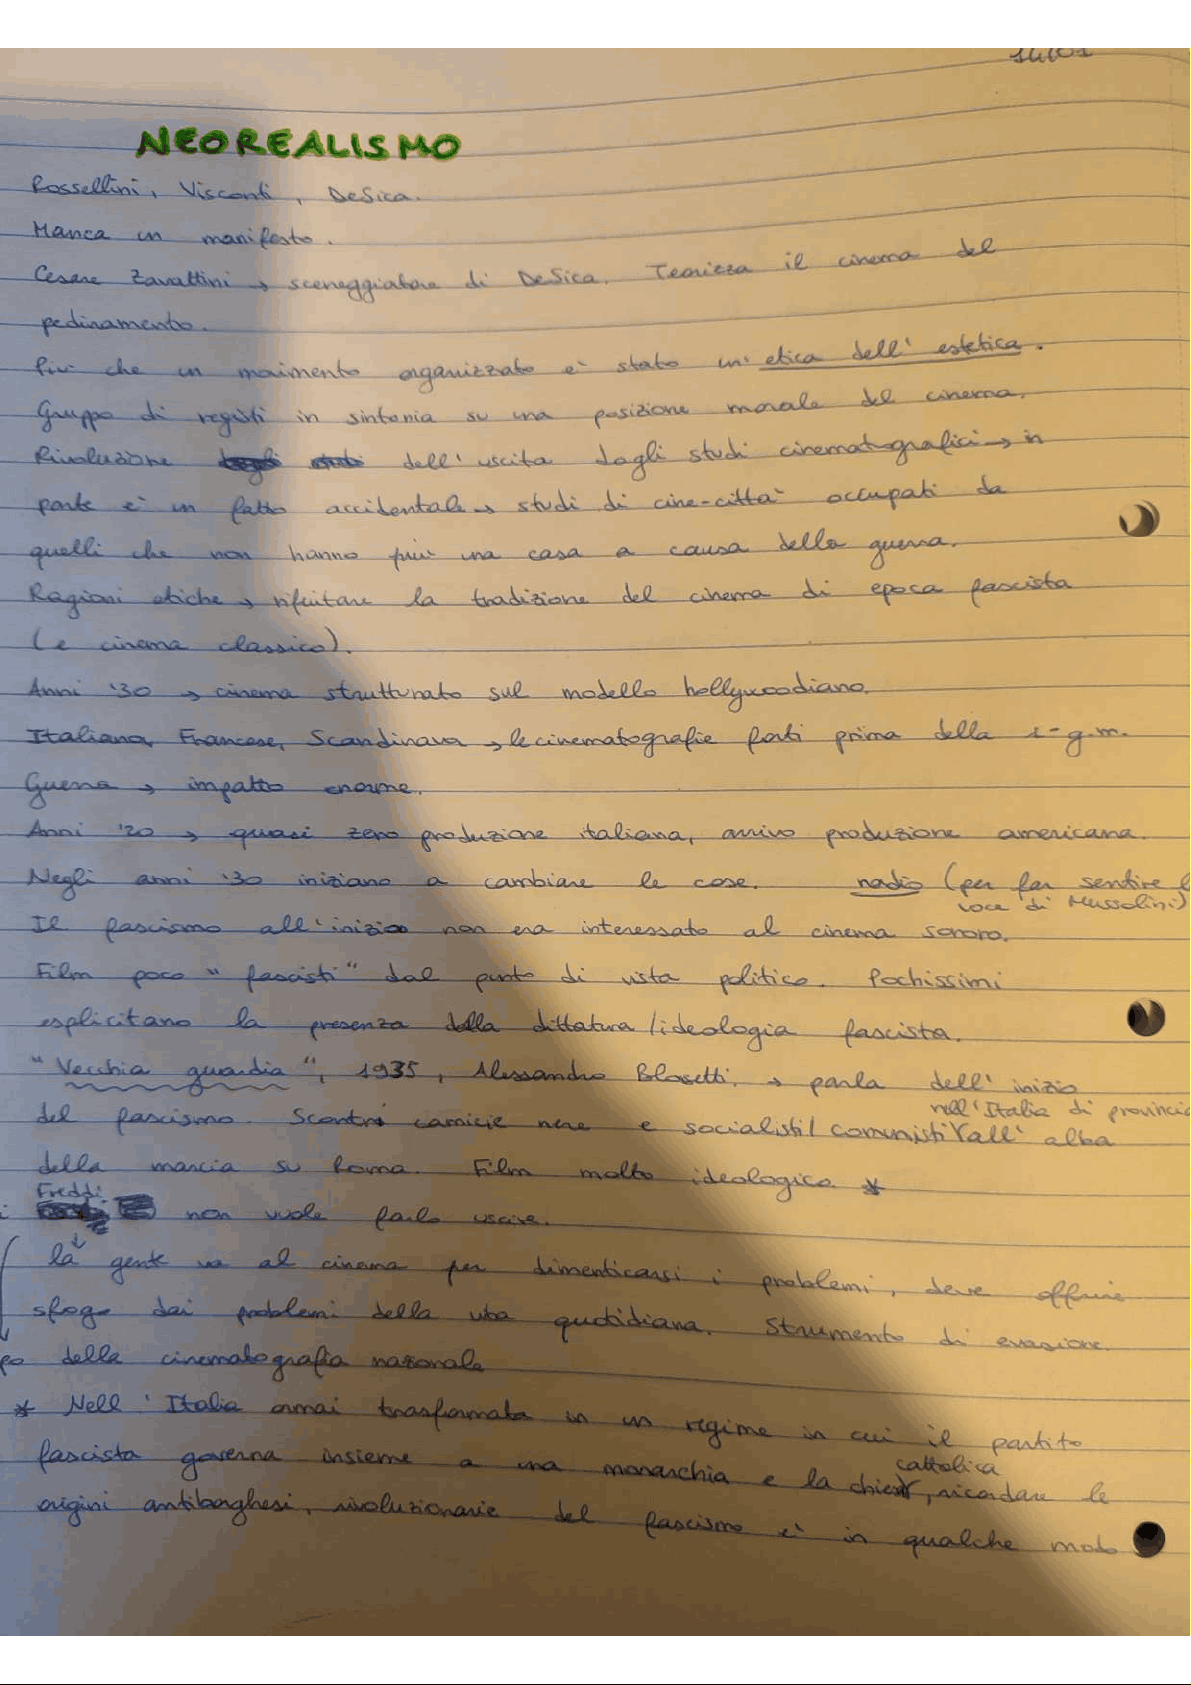 14/01
NEOREALISMO
Rossellini, Visconti, DeSica.
Manca un manifesto.
Cesare Zavattini → sceneggiatore di DeSica. Teorizza il cinema del
pedinamento.
Più che un movimento organizzato è stato un' etica dell' estetica.
Gruppo di registi in sintonia su una posizione morale del cinema.
Rivoluzione dell' uscita dagli studi cinematografici → in
parte è un fatto accidentale → studi di cine-città occupati da
quelli che non hanno più una casa a causa della guerra.
Ragioni etiche → rifiutare la tradizione del cinema di epoca fascista
(e cinema classico).
Anni '30 → cinema strutturato sul modello hollywoodiano.
Italiana, Francese, Scandinava → le cinematografie forti prima della 1ª g.m.
Guerra → impatto enorme.
Anni '20 → quasi zero produzione italiana, arrivo produzione americana.
Negli anni '30 iniziano a cambiare le cose. radio (per far sentire
voce di Mussolini)
Il fascismo all'inizio non era interessato al cinema sonoro.
Film poco "fascisti" dal punto di vista politico. Pochissimi
esplicitano la presenza della dittatura/ideologia fascista.
"Vecchia guardia", 1935, Alessandro Blasetti. → parla dell' inizio
nell'Italia di provincia
del fascismo. Scontri camicie nere e socialisti/comunisti all' alba
della marcia su Roma. Film molto ideologico *
Freddi
non vuole farlo uscire.
↓
la gente va al cinema per dimenticarsi i problemi, deve offrire
sfogo dai problemi della vita quotidiana. Strumento di evasione.
po della cinematografia nazionale
* Nell' Italia ormai trasformata in un regime in cui il partito
cattolica
fascista governa insieme a una monarchia e la chiesa, ricordare le
origini antiborghesi, rivoluzionarie del fascismo è in qualche modo